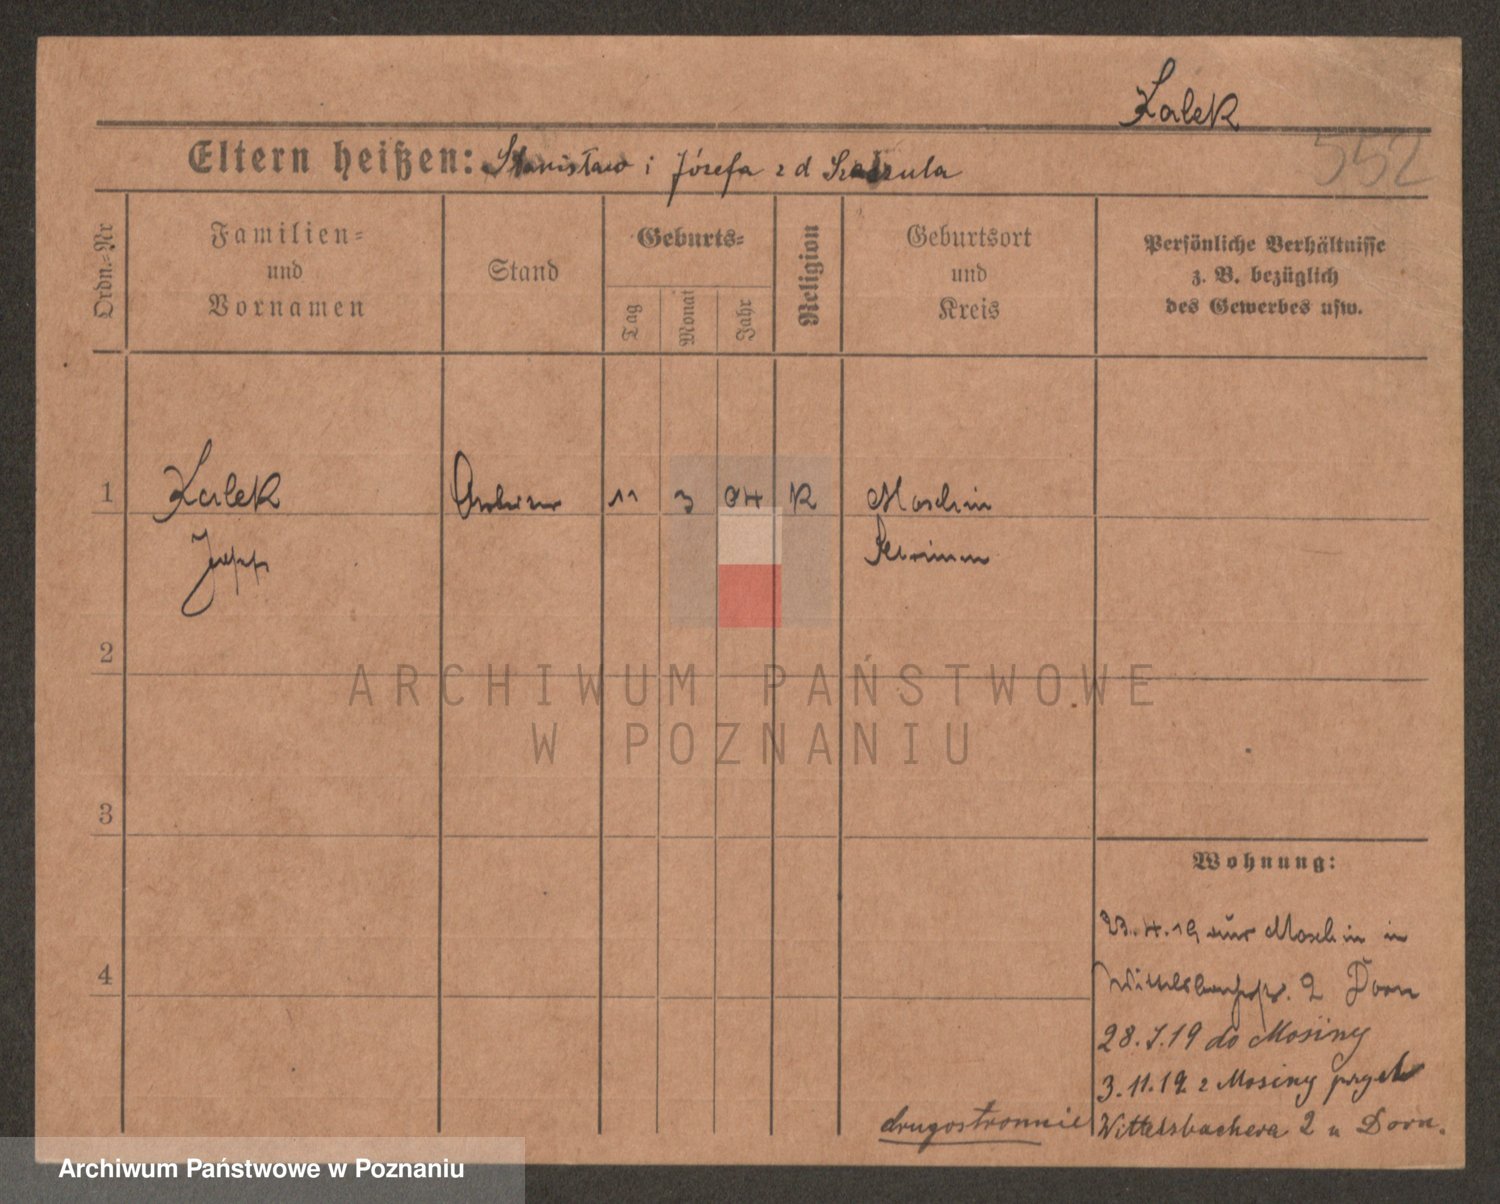 Kalek
Eltern heißen: Stanisław i Józefa z d Szeszula
552
Ordn.-Nr
Familien-
und
Vornamen
Stand
Geburts-
Tag
Monat
Jahr
Religion
Geburtsort
und
Kreis
Persönliche Verhältnisse
z. B. bezüglich
des Gewerbes usw.
1
Kalek
11
3
04
K
Moschin
Josef
Schrimm
2
ARCHIWUM PAŃSTWOWE
W POZNANIU
3
Wohnung:
23.4.19 aus Moschin in
4
Wittelsbacherstr. 2 Dorn
28.7.19 do Mosiny
3.11.19 z Mosiny przyb
drugostronnie
Wittelsbachera 2 u Dorn.
Archiwum Państwowe w Poznaniu